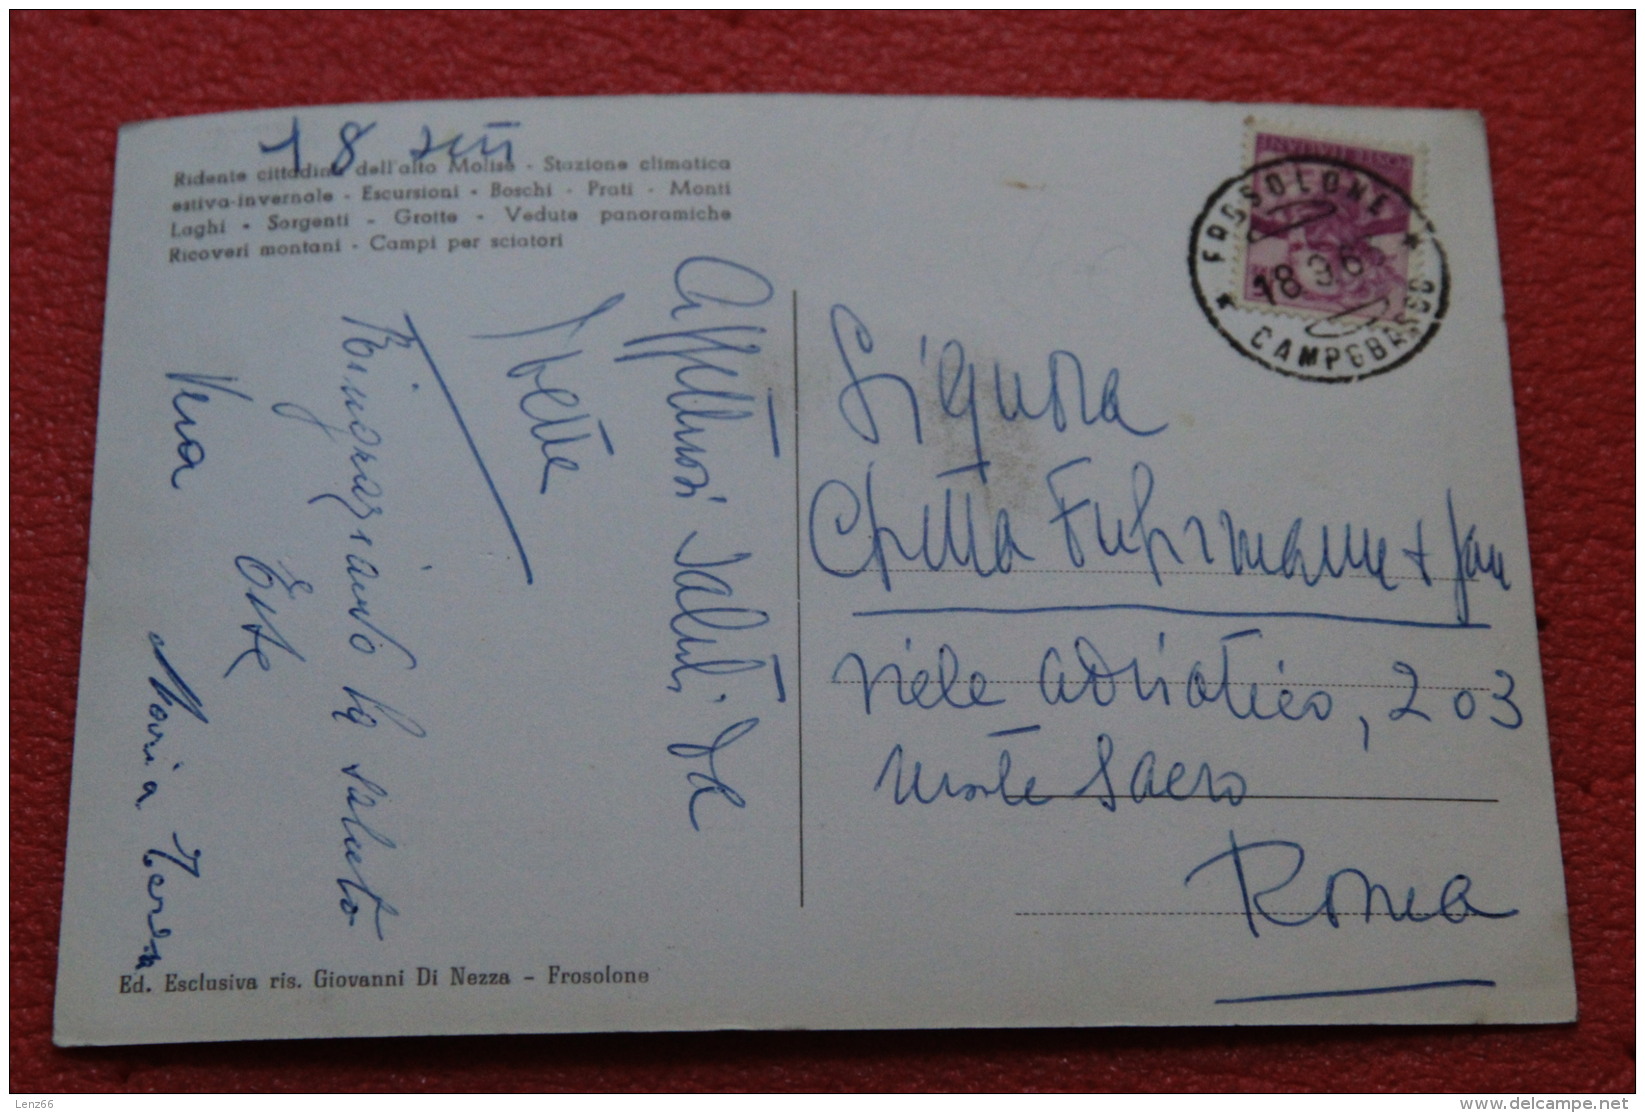 18
Ridente cittadina dell'alto Molise - Stazione climatica
estiva-invernale - Escursioni - Boschi - Prati - Monti
Laghi - Sorgenti - Grotte - Vedute panoramiche
Ricoveri montani - Campi per sciatori
Affettuosi saluti, da
Yvette
Ringraziando la saluto
Vera
Este
Maria Teresa
Ed. Esclusiva ris. Giovanni Di Nezza - Frosolone
POSTE ITALIANE
FROSOLONE
18.9.6
CAMPOBASSO
Signora
Fuhrmann + fam
viale Adriatico, 203
Monte Sacro
Roma
Lenz66
www.delcampe.net